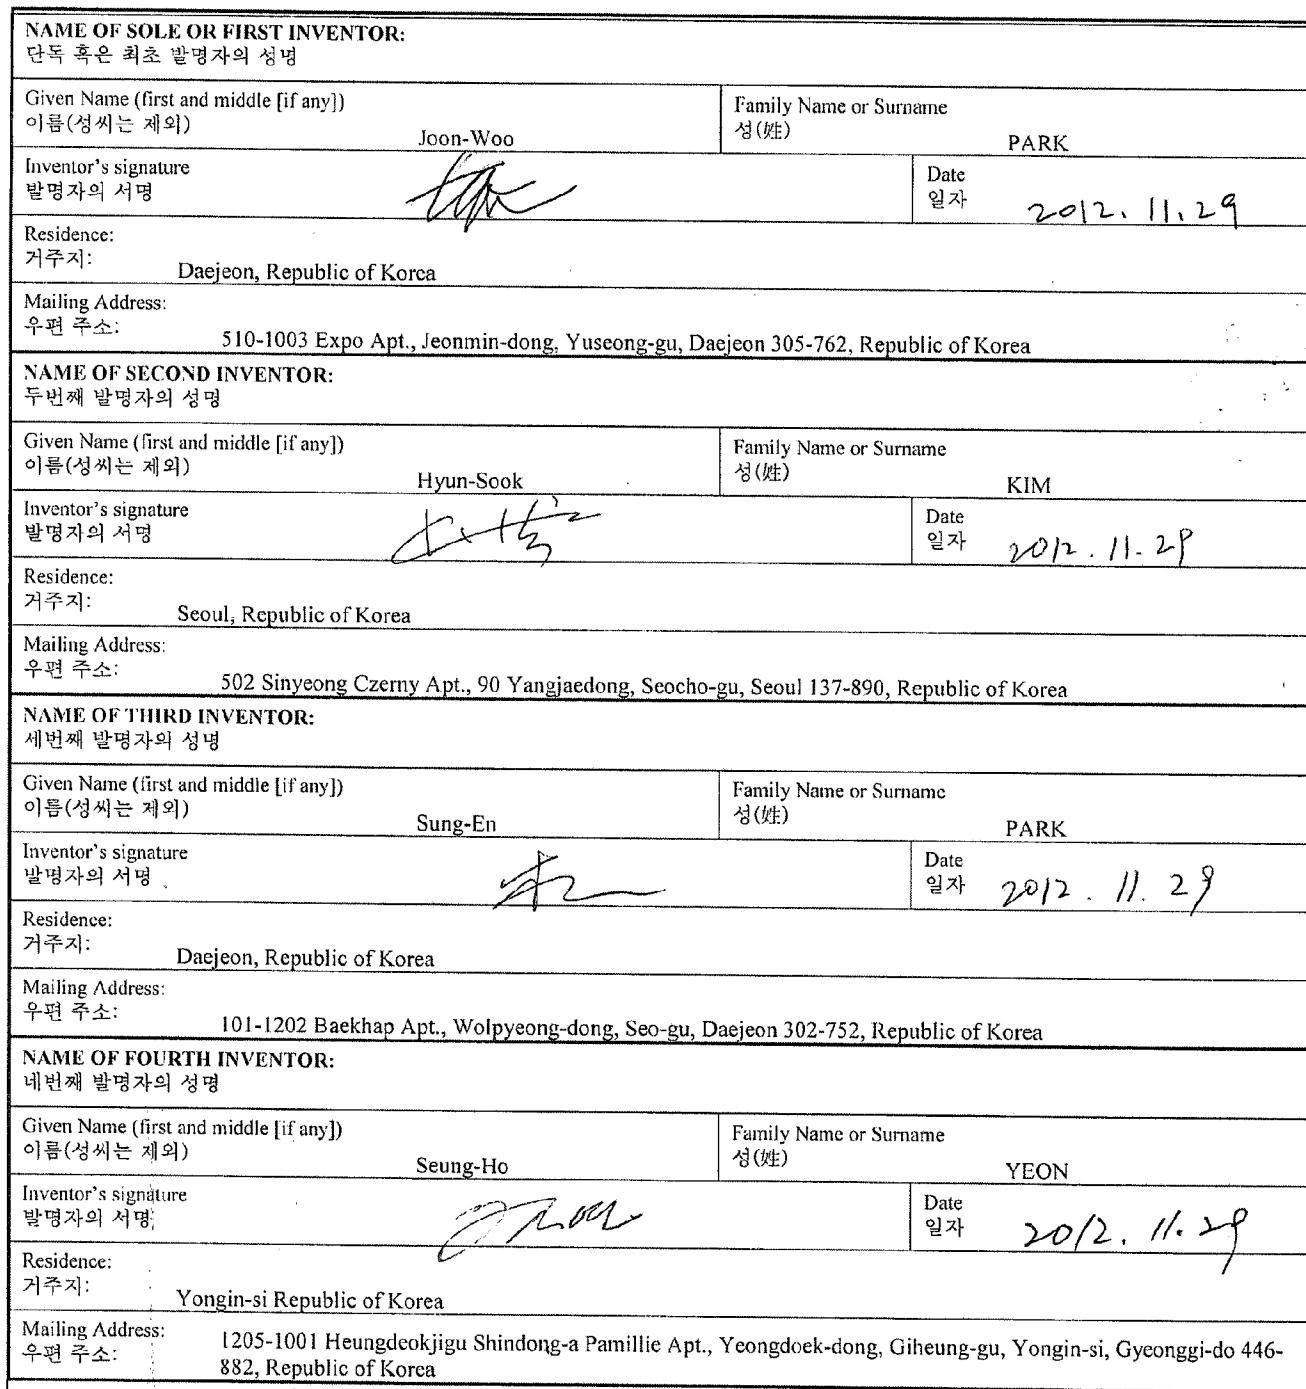 NAME OF SOLE OR FIRST INVENTOR:
단독 혹은 최초 발명자의 성명
Given Name (first and middle [if any])
이름(성씨는 제외)
Joon-Woo
Family Name or Surname
성(姓)
PARK
Inventor's signature
발명자의 서명
Date
일자
2012. 11. 29
Residence:
거주지:
Daejeon, Republic of Korea
Mailing Address:
우편 주소:
510-1003 Expo Apt., Jeonmin-dong, Yuseong-gu, Daejeon 305-762, Republic of Korea
NAME OF SECOND INVENTOR:
두번째 발명자의 성명
Given Name (first and middle [if any])
이름(성씨는 제외)
Hyun-Sook
Family Name or Surname
성(姓)
KIM
Inventor's signature
발명자의 서명
Date
일자
2012. 11. 29
Residence:
거주지:
Seoul, Republic of Korea
Mailing Address:
우편 주소:
502 Sinyeong Czerny Apt., 90 Yangjaedong, Seocho-gu, Seoul 137-890, Republic of Korea
NAME OF THIRD INVENTOR:
세번째 발명자의 성명
Given Name (first and middle [if any])
이름(성씨는 제외)
Sung-En
Family Name or Surname
성(姓)
PARK
Inventor's signature
발명자의 서명
Date
일자
2012. 11. 29
Residence:
거주지:
Daejeon, Republic of Korea
Mailing Address:
우편 주소:
101-1202 Baekhap Apt., Wolpyeong-dong, Seo-gu, Daejeon 302-752, Republic of Korea
NAME OF FOURTH INVENTOR:
네번째 발명자의 성명
Given Name (first and middle [if any])
이름(성씨는 제외)
Seung-Ho
Family Name or Surname
성(姓)
YEON
Inventor's signature
발명자의 서명
Date
일자
2012. 11. 29
Residence:
거주지:
Yongin-si Republic of Korea
Mailing Address:
우편 주소:
1205-1001 Heungdeokjigu Shindong-a Pamillie Apt., Yeongdoek-dong, Giheung-gu, Yongin-si, Gyeonggi-do 446-
882, Republic of Korea